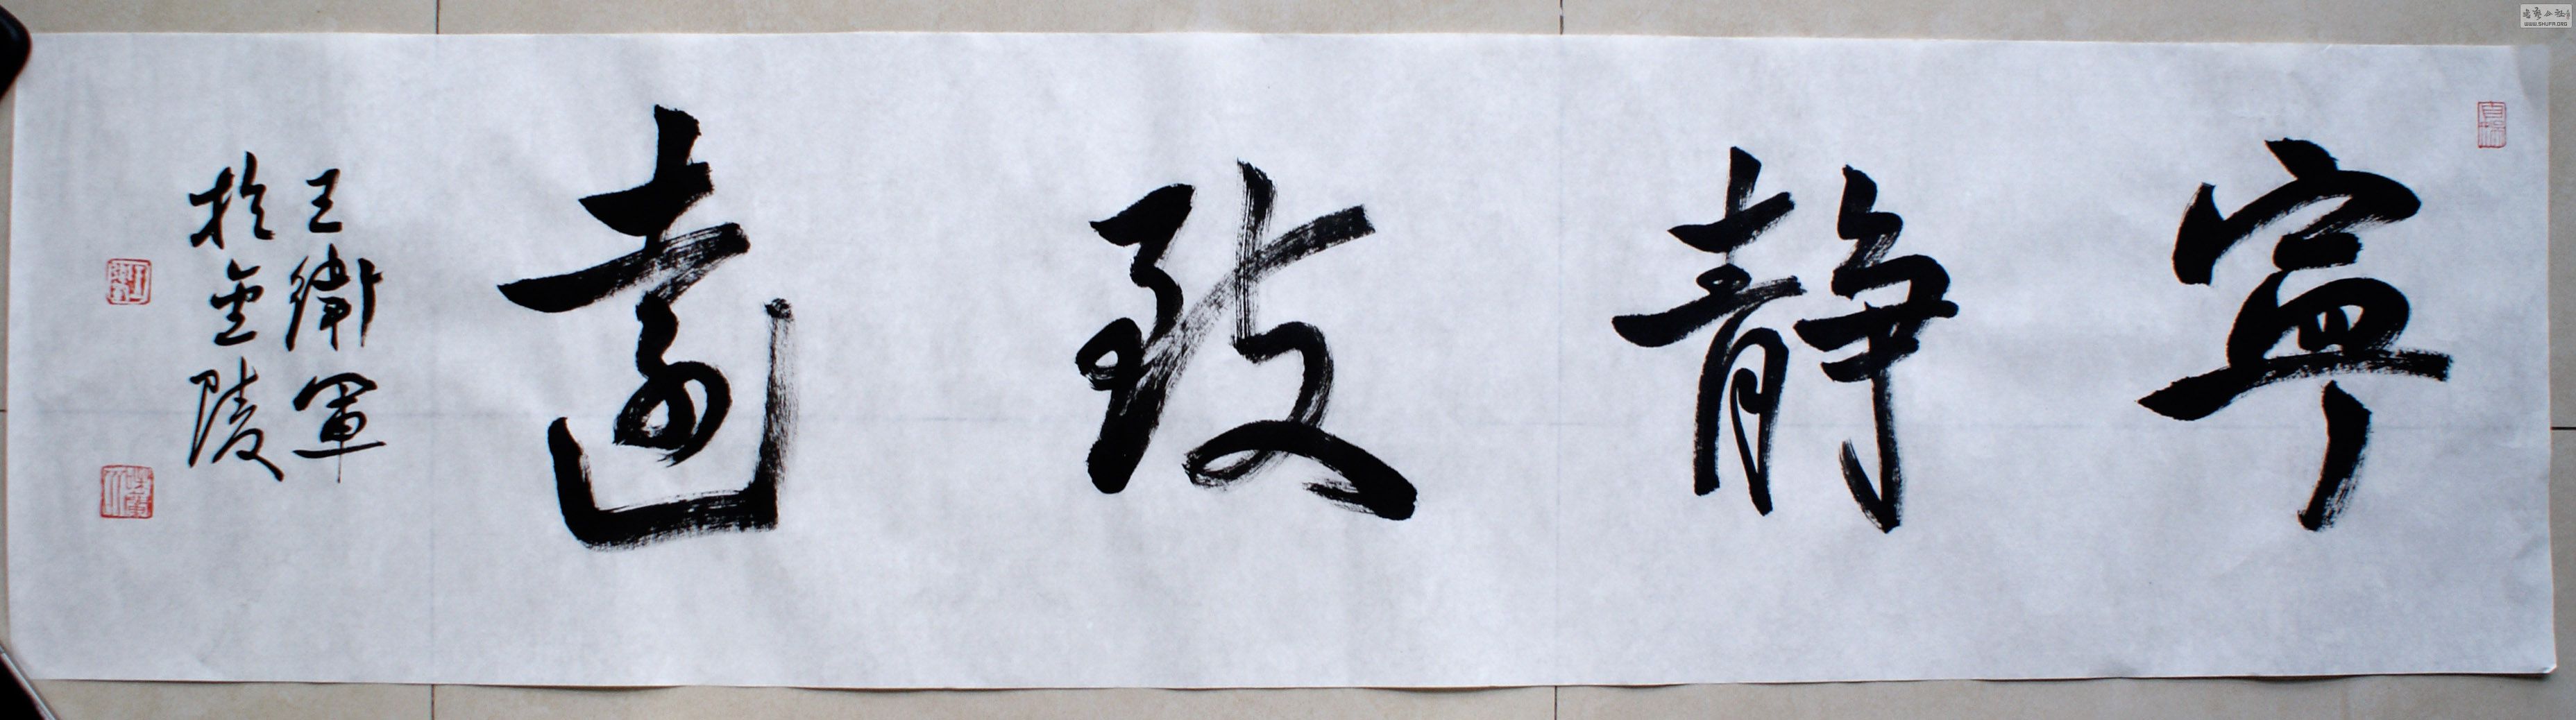 寧靜致遠
王衛軍
於金陵
WWW.SHUFA.ORG